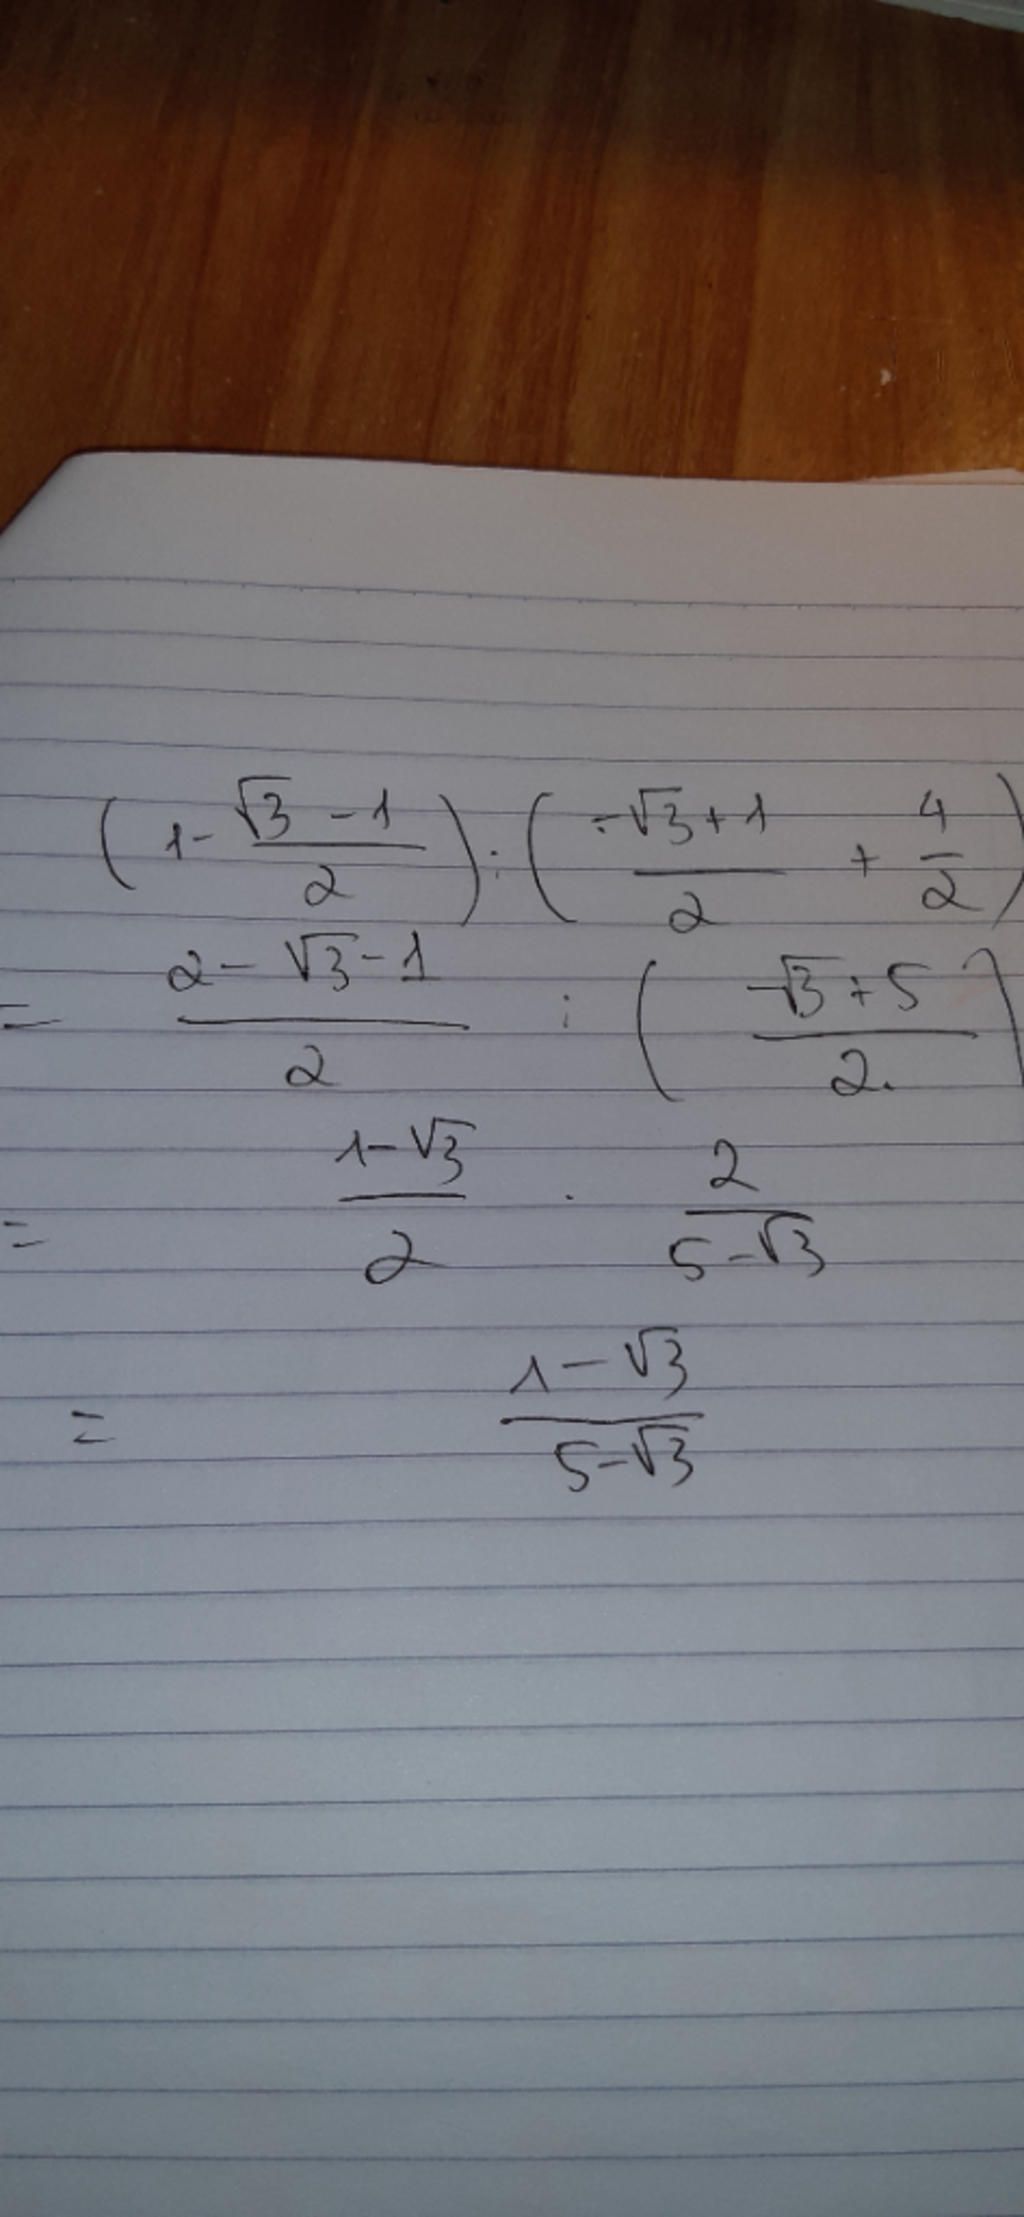 (1 - (√3 - 1)/2) : ((-√3 + 1)/2 + 4/2)
= (2 - √3 - 1)/2 : ((-√3 + 5)/2)
= (1 - √3)/2 . 2/(5 - √3)
= (1 - √3)/(5 - √3)